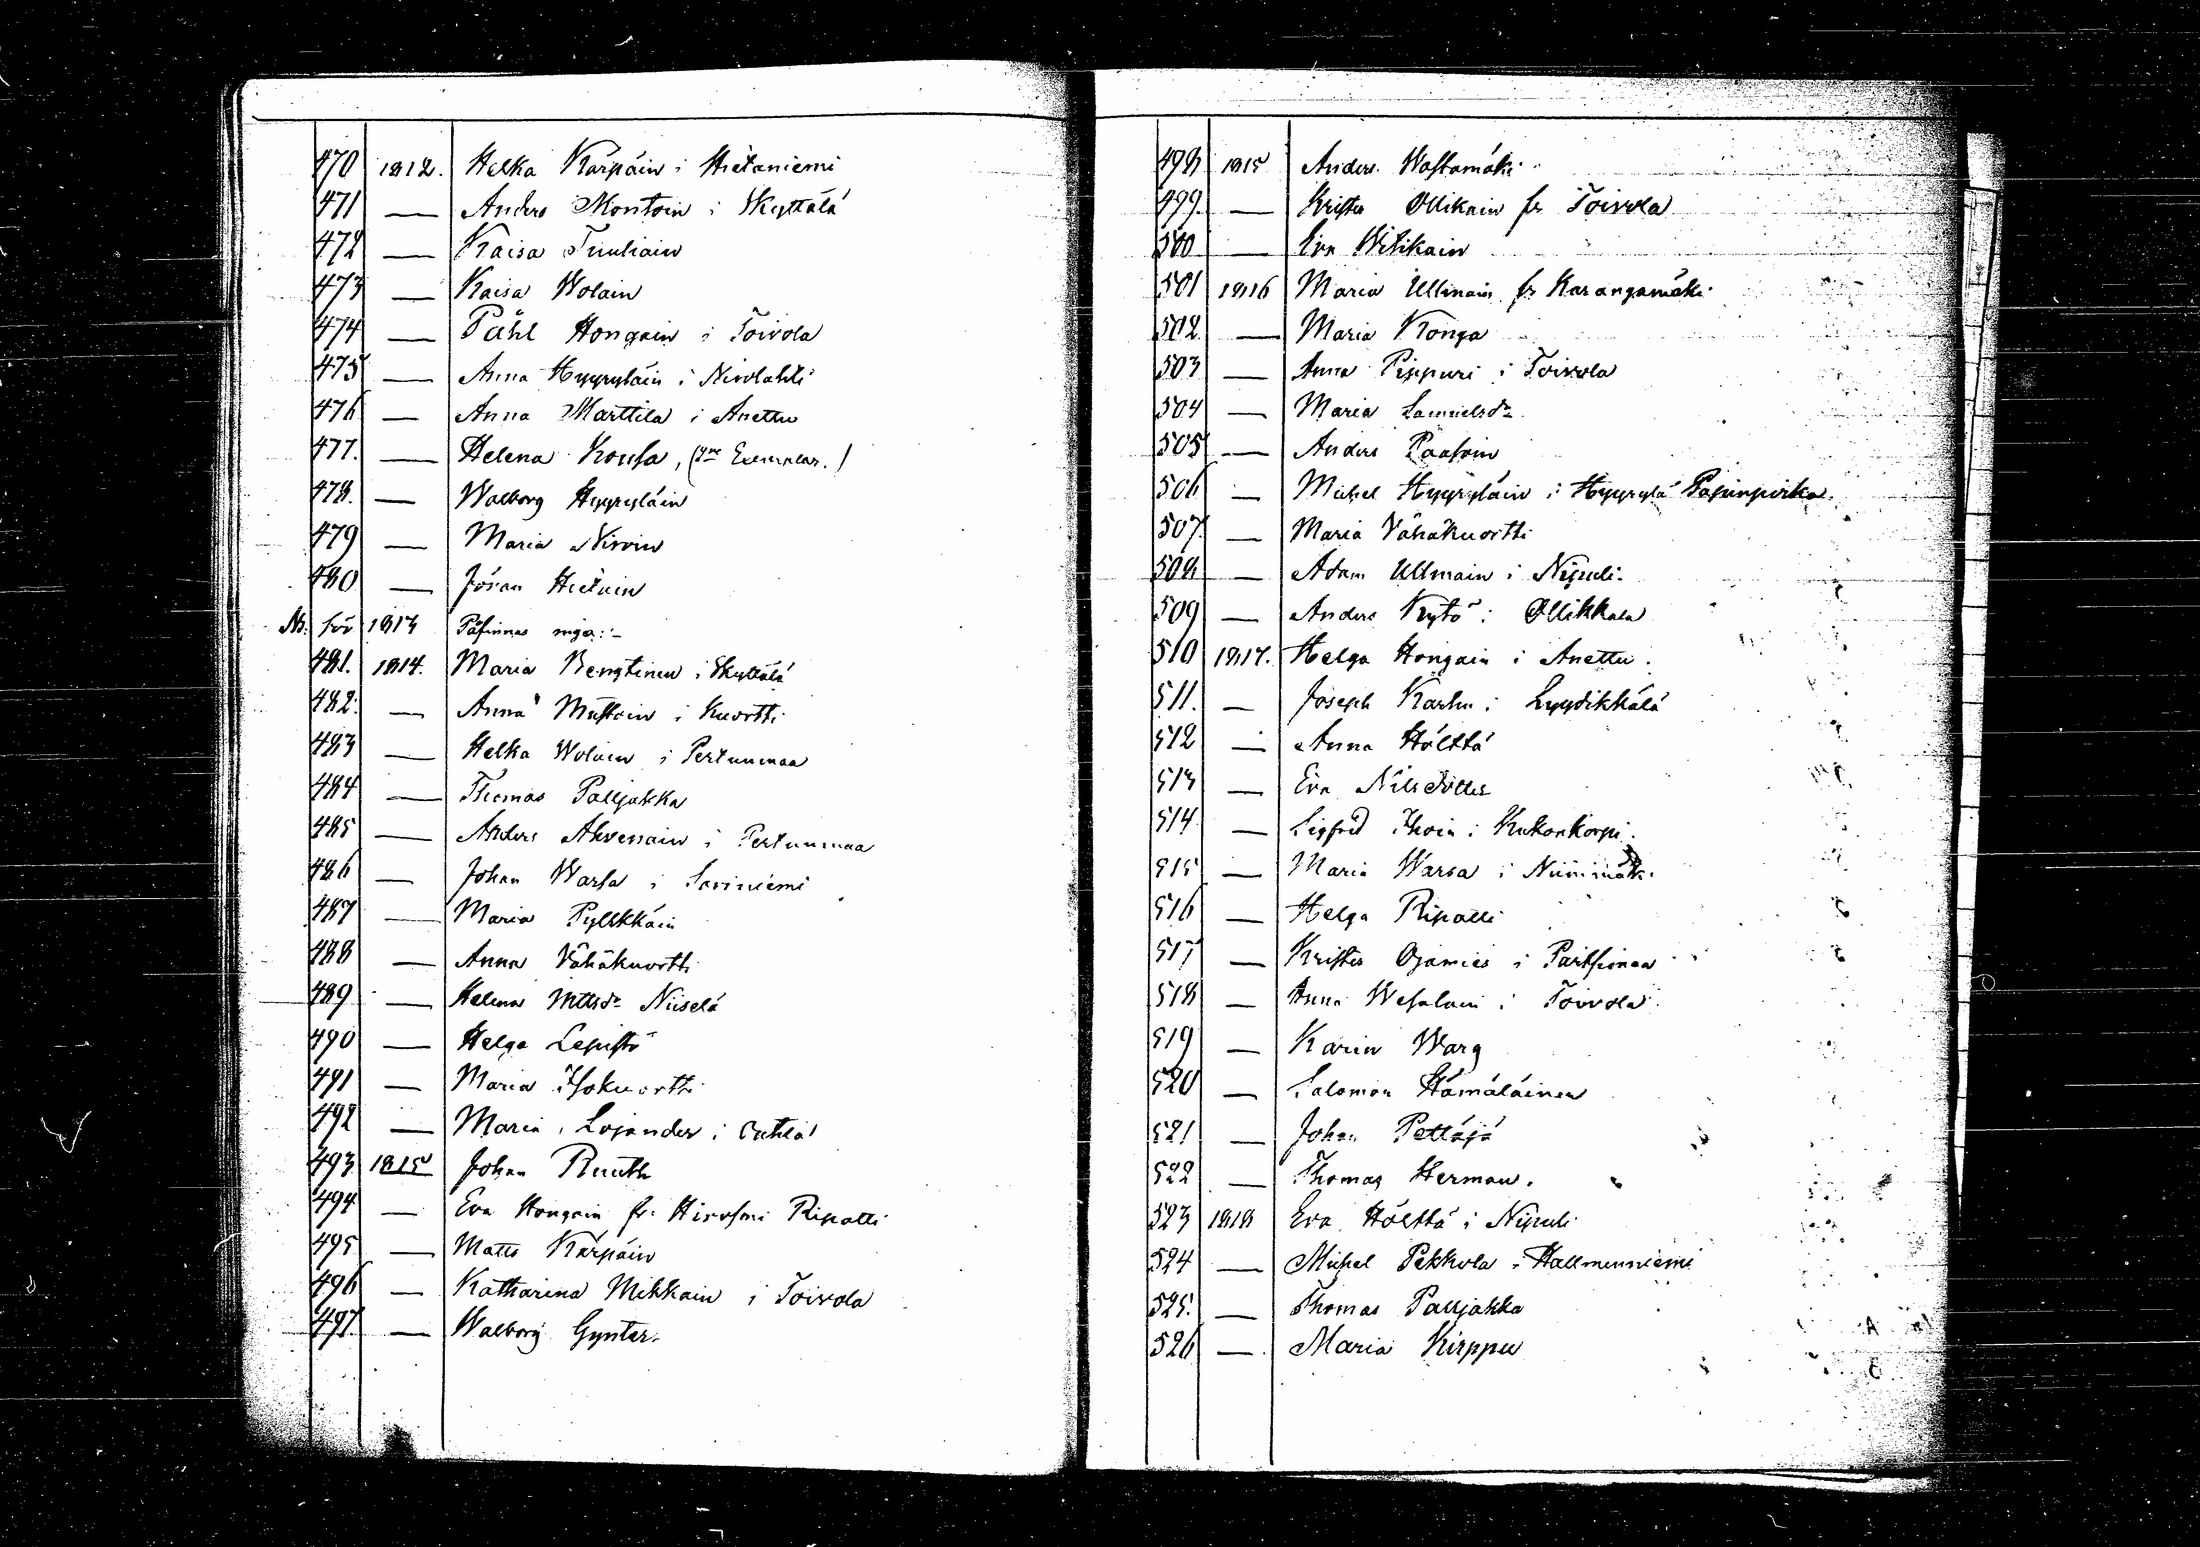 470 1812. Helka Kärpäin i Hietaniemi
471 — Anders Montoin i Skyttälä
472 — Kaisa Tuuliain
473 — Kaisa Wolain
474 — Påhl Hongain i Toivola
475 — Anna Hyyryläin i Nivolahti
476 — Anna Marttila i Anettu
477. — Helena Kousa, ( Exemplar.)
478. — Walborg Hyyryläin
479 — Maria Niroin
480 — Jöran Hietain
Nb. för 1813 finnas inga:–
481. 1814. Maria Bengtinen i Skyttälä
482. — Anna Mustoin i Kuortti
483 — Helka Wolain i Pertunmaa
484 — Thomas Palljakka
485 — Anders Ahvenain i Pertunmaa
486 — Johan Warsa i Saviniemi
487 — Maria Pylkkäin
488 — Anna Vähäkuortti
489 — Helena Mattsdr Niiselä
490 — Helga Lepistö
491 — Maria Isokuortti
492 — Maria Lojander i
493 1815 Johan Ruuth
494 — Eva Hongain fr. Ripatti
495 — Matts Kärpäin
496 — Katharina Mikkain i Toivola
497. — Walborg Gynter.
498 1815 Anders Wastamäki
499. — Krister Ollikain fr Toivola
500 — Eva Witikain
501 1816 Maria Ullmain fr Karangamäki
502 — Maria Konga
503 — Anna Pippuri i Toivola
504 — Maria Samuelsdr
505 — Anders Paasoin
506 — Michel Hyyryläin i Hyyrylä
507. — Maria Vähäkuortti
508 — Adam Ullmain i Nipuli.
509 — Anders Kytö i Ollikkala
510 1817. Helga Hongain i Anettu.
511. — Joseph Karhu i Lyydikkälä
512 — Anna Hölttä
513 — Eva Nilsdotter
514 — Sigfrid Ihoin i Kukonkorpi.
515 — Maria Warsa i Niinimäki.
516 — Helga Ripatti
517 — Krister Ojamies i Partsimaa
518 — Anna Wesalain i Toivola
519 — Karin Warg
520 — Salomon Hämäläinen
521 — Johan Pettäjä
522 — Thomas Herman.
523 1818 Eva Hölttä i Nipuli
524 — Michel Pekkola i Hallmenniemi
525. — Thomas Palljakka
526 — Maria Kirppu